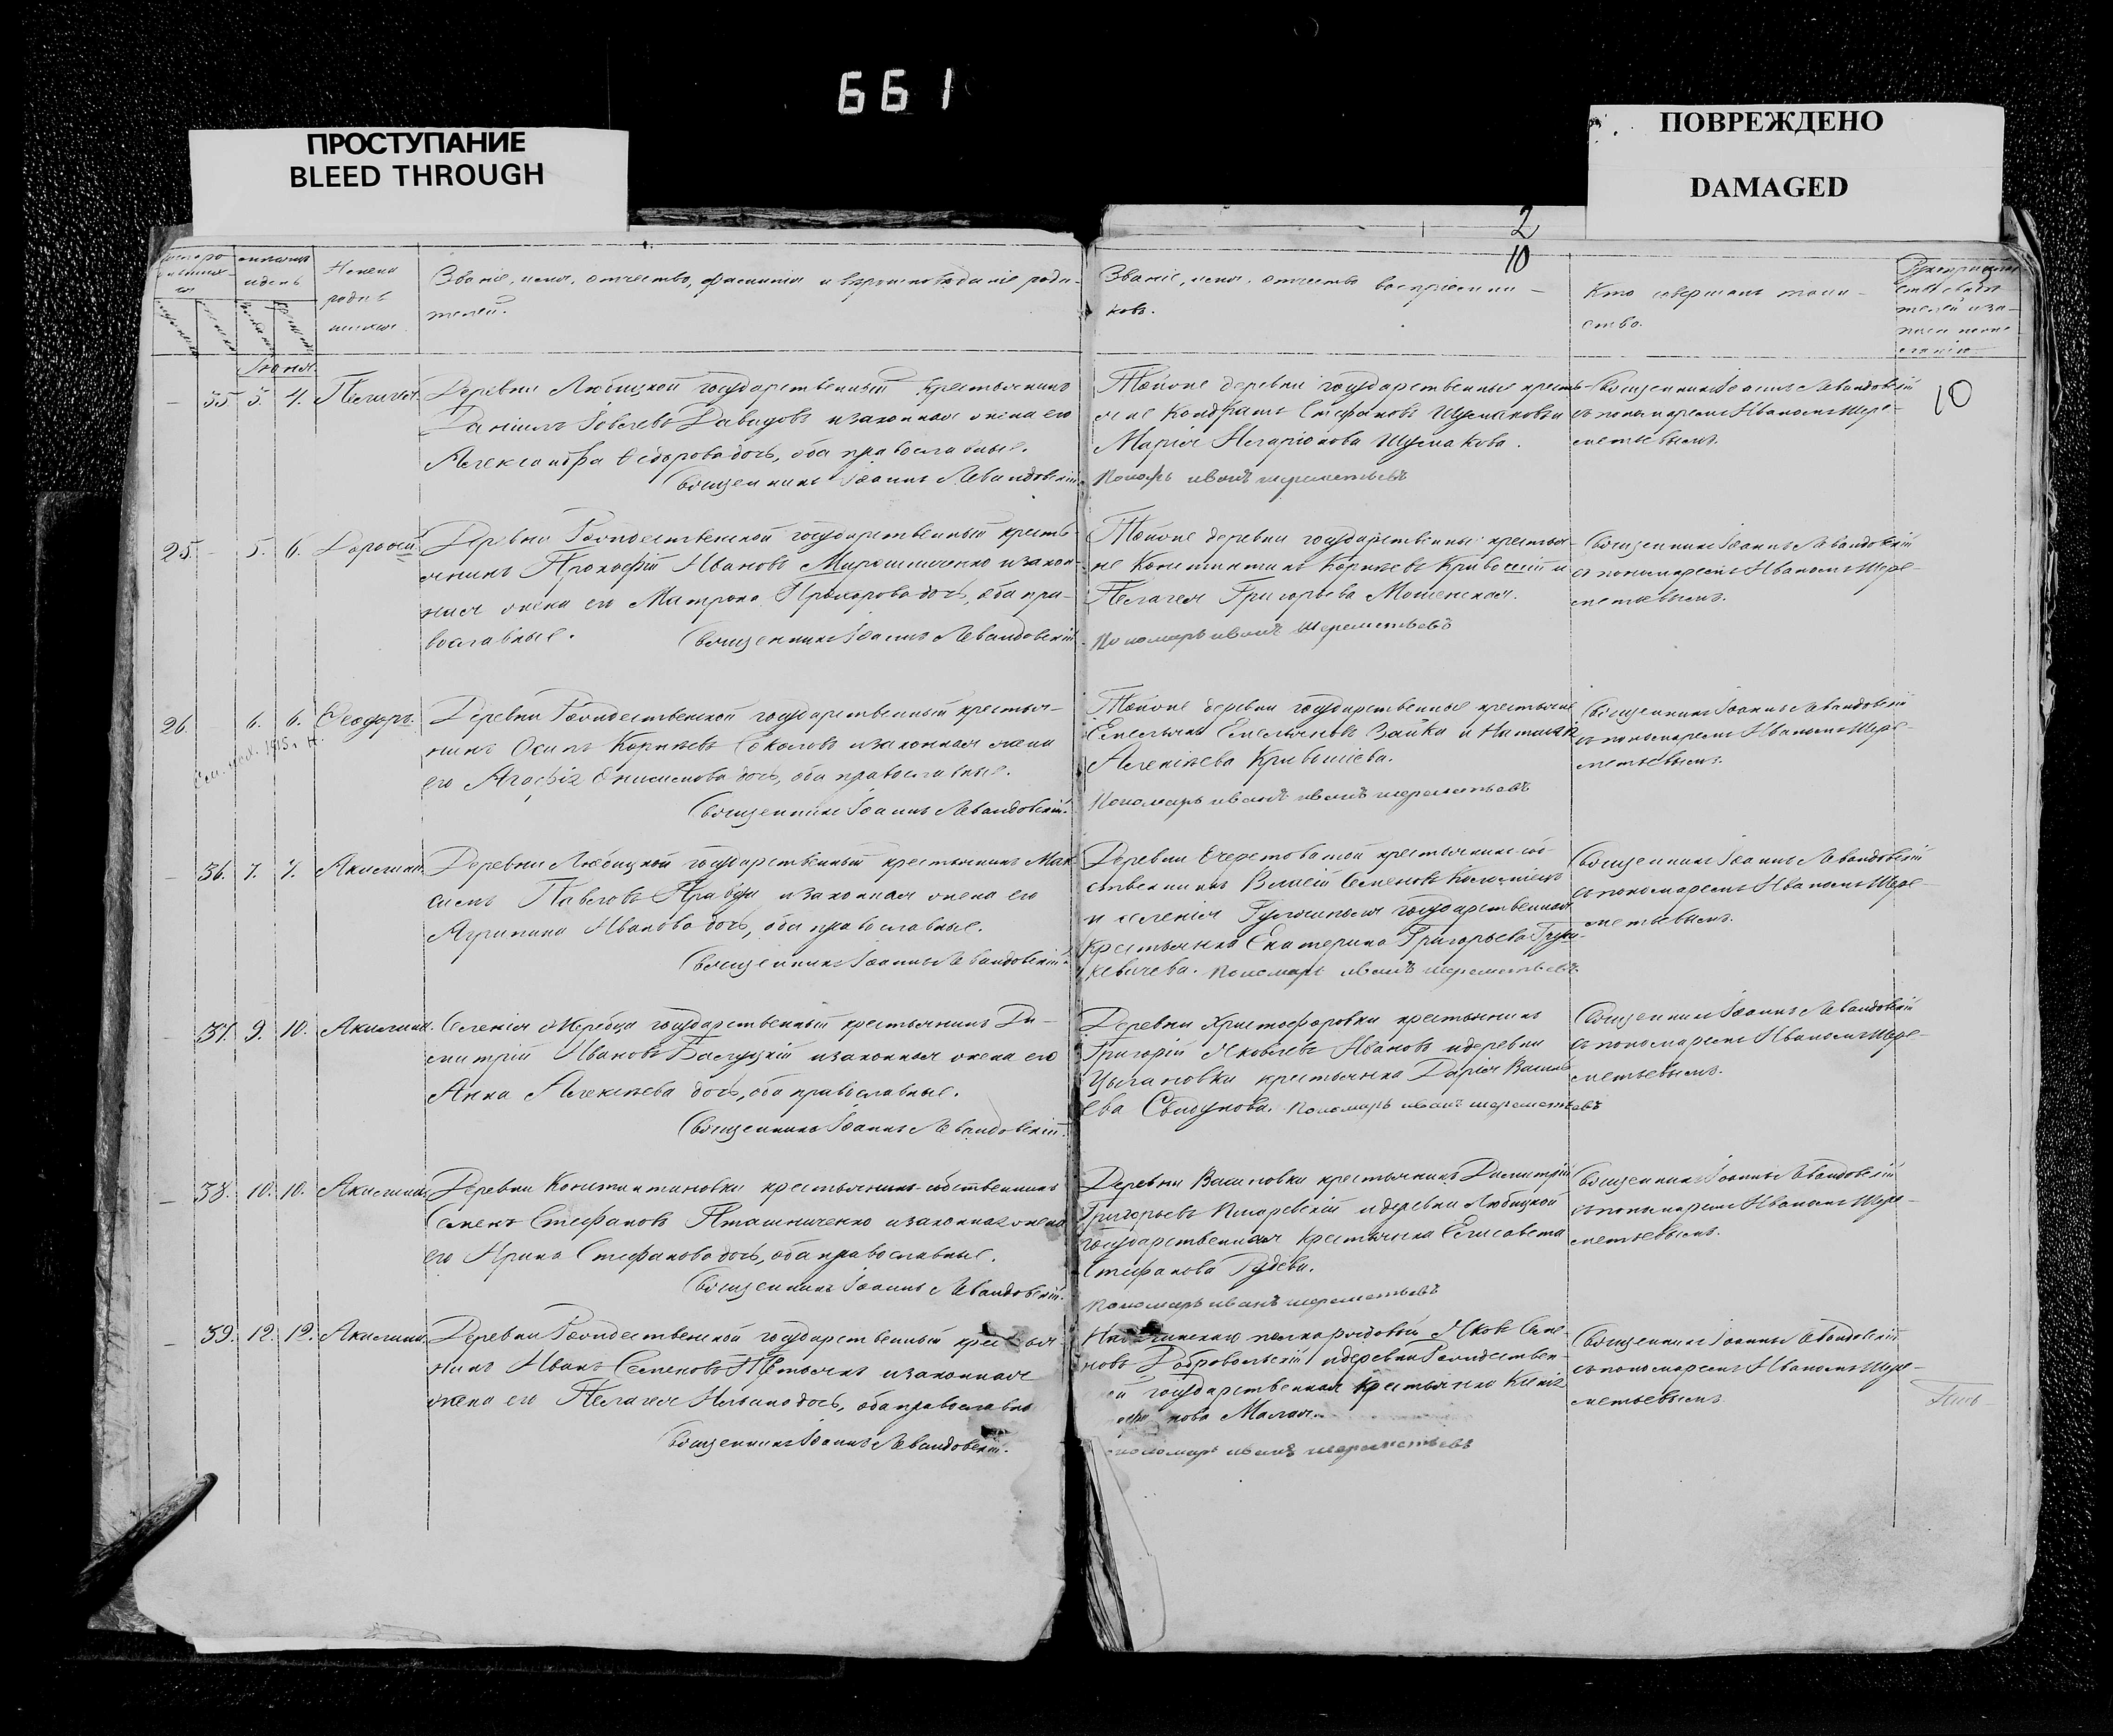 661
ПРОСТУПАНИЕ
BLEED THROUGH
ПОВРЕЖДЕНО
DAMAGED
2
10
Имена
роди
Званіе, имя, отчество, фамилія и вѣроисповѣданіе роди-
телей.
Званіе, имя, отчество воспріемни-
ковъ.
Кто совершалъ таин-
ство.
10
Іюня
35 5. 4. Пелагея
Деревни Любицкой государственный крестьянинъ
Даніилъ Іовлевъ Давыдовъ и законная жена его
Александра Ѳедорова дочь, оба православные.
Священникъ Іоаннъ Левандовскій.
Тойже деревни государственные кресть-
яне Кондратъ Стефановъ Шумаковъ и
Марія Иларіонова Шумакова.
Пономарь иванъ шереметьевъ
Священникъ Іоаннъ Левандовскій
съ пономаремъ Иваномъ Шере-
метьевымъ.
25. 5. 6. Дороѳей
Деревни Рождественской государственный кресть-
янинъ Прокофій Ивановъ Мирошниченко и закон-
ная жена его Матрона Прохорова дочь, оба пра-
вославные.
Священникъ Іоаннъ Левандовскій
Тойже деревни государственные крестья-
не Константинъ Корнѣевъ Кривошій и
Пелагея Григорьева
Пономарь иванъ Шереметьевъ
Священникъ Іоаннъ Левандовскій
съ пономаремъ Иваномъ Шере-
метьевымъ.
26. 6. 6. Ѳеодоръ.
1915 г.
Деревни Рождественской государственный крестья-
нинъ Осипъ Корнѣевъ Соколовъ и законная жена
его Агафія Онисимова дочь, оба православные.
Священникъ Іоаннъ Левандовскій.
Тойже деревни государственные крестьяне
Емельянъ Емельяновъ Зайка и Наталія
Алексѣева Кривошіева.
Пономарь иванъ иванъ шереметьевъ
Священникъ Іоаннъ Левандовскій
съ пономаремъ Иваномъ Шере-
метьевымъ.
36. 7. 7. Акилина.
Деревни Любицкой государственный крестьянинъ Мак-
симъ Павловъ и законная жена его
Агрипина Иванова дочь, оба православные.
Священникъ Іоаннъ Левандовскій.
Деревни Очеретоватой крестьянинъ соб-
ственникъ Семеновъ
и селенія государственная
крестьянка Екатерина Григорьева
Пономарь иванъ шереметьевъ.
Священникъ Іоаннъ Левандовскій
съ пономаремъ Иваномъ Шере-
метьевымъ.
37. 9. 10. Акилина.
Селенія Жеребца государственный крестьянинъ Ди-
митрій Ивановъ и законная жена его
Анна Алексѣева дочь, оба православные.
Священникъ Іоаннъ Левандовскій.
Деревни Христофоровки крестьянинъ
Григорій Яковлевъ Ивановъ и деревни
Цыгановки крестьянка Дарія Василь
ева Свидунова. Пономарь иванъ шереметьевъ
Священникъ Іоаннъ Левандовскій
съ пономаремъ Иваномъ Шере-
метьевымъ.
38. 10. 10. Акилина
Деревни Константиновки крестьянинъ-собственникъ
Семенъ Стефановъ Пташниченко и законная жена
его Ирина Стефанова дочь, оба православные.
Священникъ Іоаннъ Левандовскій.
Деревни Васиновки крестьянинъ Димитрій
Григорьевъ Писаревскій и деревни Любицкой
государственная крестьянка Елисавета
Стефанова
Пономарь иванъ шереметьевъ
Священникъ Іоаннъ Левандовскій
съ пономаремъ Иваномъ Шере-
метьевымъ.
39. 12. 12. Акилина.
Деревни Рождественской государственный крестьян-
нинъ Иванъ Семеновъ и законная
жена его Пелагея дочь, оба православны
Священникъ Іоаннъ Левандовскій.
полка рядовой Яковъ Семе-
новъ Добровольскій и деревни Рождествен-
ой государственная крестьянка
нова Малая.
пономарь иванъ шереметьевъ
Священникъ Іоаннъ Левандовскій
съ пономаремъ Иваномъ Шере-
метьевымъ.